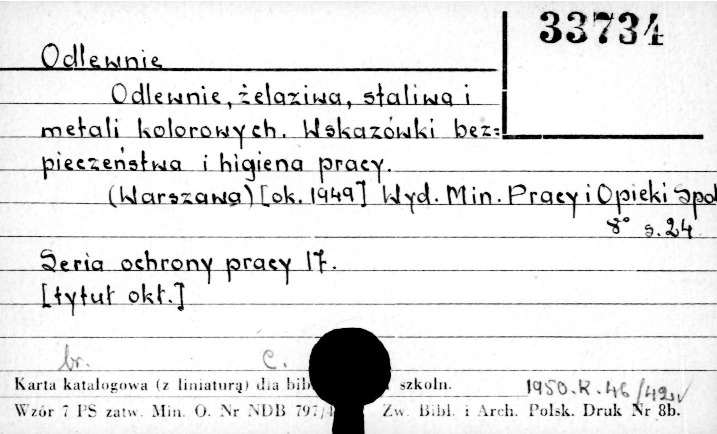 33734
Odlewnie
Odlewnie, żelaziwa, staliwa i
metali kolorowych. Wskazówki bez=
pieczeństwa i higiena pracy.
(Warszawa) [ok. 1949] Wyd. Min. Pracy i Opieki Społ
8° s. 24
Seria ochrony pracy 17.
[tytuł okł.]
br. C.
Karta katalogowa (z liniaturą) dla szkoln.
Wzór 7 PS zatw. Min. O. Nr NDB 797/ Zw. Bibl. i Arch. Polsk. Druk Nr 8b.
1950.K.46